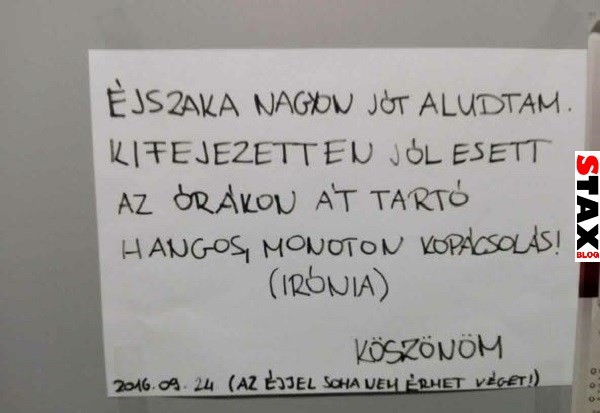 ÉJSZAKA NAGYON JÓT ALUDTAM.
KIFEJEZETTEN JÓL ESETT
AZ ÓRÁKON ÁT TARTÓ
HANGOS, MONOTON KOPÁCSOLÁS!
(IRÓNIA)
KÖSZÖNÖM
2016.09.24. (AZ ÉJJEL SOHA NEM ÉRHET VÉGET!)
STAX
BLOG